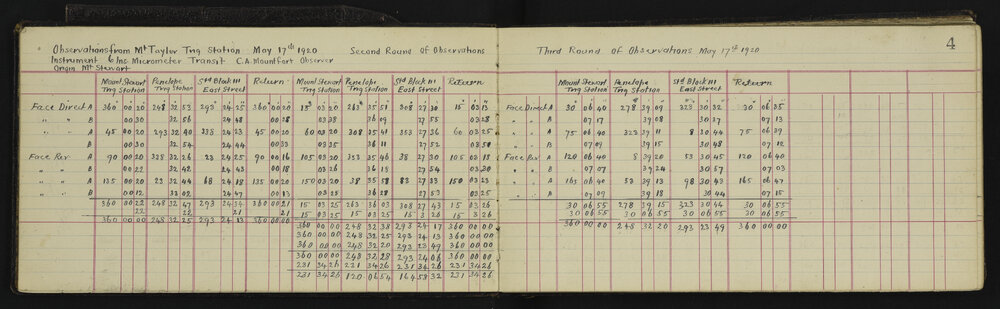 4
Observations from Mt Taylor Trig Station May 17th 1920 Second Round Of Observations
Instrument 6 Ins. Micrometer Transit C.A. Mountfort Observer
Origin Mt Stewart
Third Round Of Observations May 17th 1920
Mount Stewart Trig Station Penelope Trig Station Std Block III East Street Return Mount Stewart Trig Station Penelope Trig Station Std Block III East Street Return
Mount Stewart Trig Station Penelope Trig Station Std Block III East Street Return
Face Direct A 360 00 20 248 32 53 293 24 25 360 00 20 15 03 20 263 35 51 308 27 30 15 03 13
" " B 00 30 32 56 24 48 00 28 03 38 36 09 27 55 03 28
" " A 45 00 20 293 32 40 338 24 23 45 00 20 60 03 20 308 35 41 353 27 36 60 03 25
" " B 00 30 32 54 24 44 00 33 03 35 36 11 27 52 03 50
Face Rev A 90 00 20 338 32 26 23 24 25 90 00 16 105 03 20 353 35 46 38 27 30 105 03 18
" " B 00 22 32 42 24 43 00 18 03 26 36 18 27 54 03 30
" " A 135 00 20 23 32 44 68 24 18 135 00 20 150 03 20 38 35 58 83 27 33 150 03 23
" " B 00 12 32 02 24 47 00 13 03 25 36 28 27 53 03 25
360 00 22 248 32 47 293 24 34 360 00 21 15 03 25 263 36 03 308 27 43 15 03 26
22 22 21 21 15 03 25 15 03 25 15 3 26 15 3 26
360 00 00 248 32 25 293 24 13 360 00 00 360 00 00 248 32 38 293 24 17 360 00 00
360 00 00 248 32 25 293 24 13 360 00 00
360 00 00 248 32 20 293 23 49 360 00 00
360 00 00 248 32 28 293 24 06 360 00 00
231 34 26 231 34 26 231 34 26 231 34 26
231 34 26 120 06 54 164 58 32 231 34 26
Face Direct A 30 06 40 278 39 09 323 30 32 30 06 35
" " B 07 17 39 08 30 27 07 13
" " A 75 06 40 323 39 11 8 30 44 75 06 39
" " B 07 09 39 15 30 48 07 12
Face Rev A 120 06 40 8 39 20 53 30 45 120 06 40
" " B 07 07 39 24 30 57 07 03
" " A 165 06 40 53 39 13 98 30 43 165 06 47
" " B 07 09 39 18 30 44 07 15
30 06 55 278 39 15 323 30 44 30 06 55
30 06 55 30 06 55 30 06 55 30 06 55
360 00 00 248 32 20 293 23 49 360 00 00